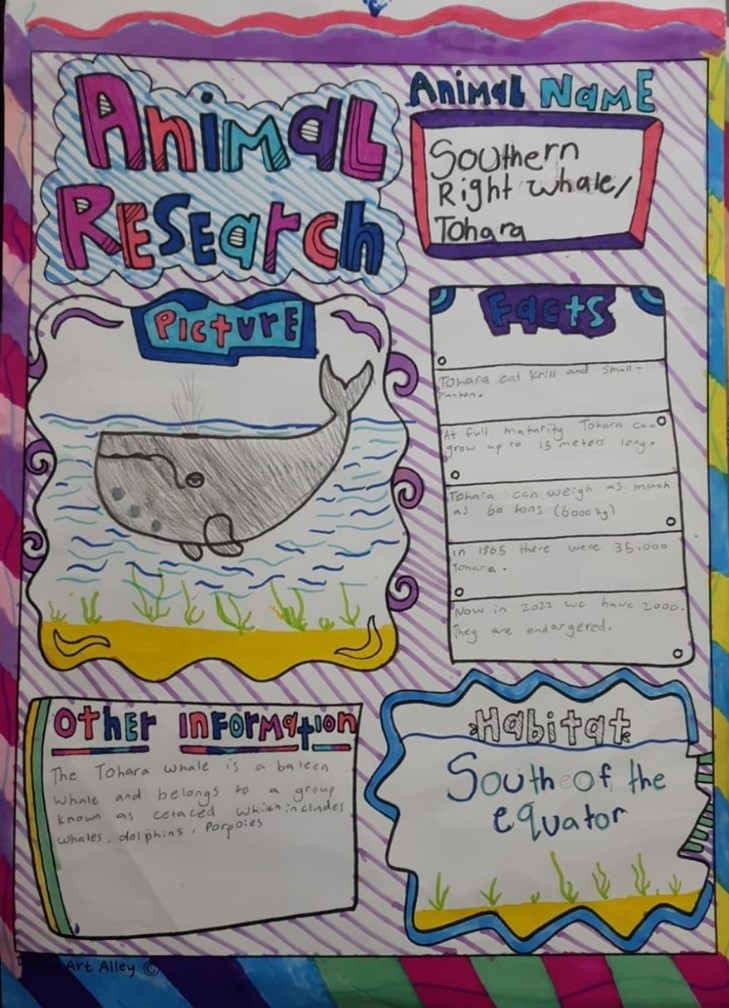 Animal
Research
Animal Name
Southern
Right whale/
Tohara
Picture
Facts
Tohara eat krill and small-
Plankon.
At full maturity Tohara can
grow up to 15 meters long.
Tohara can weigh as much
as 60 tons (6000kg)
in 1965 there were 35.000
Tohara.
Now in 2022 we have 2000.
They are endargered.
Other Information
The Tohara whale is a baleen
whale and belongs to a group
known as cetaced which includes
whales, dolphins, Porpoies
Habitat
South of the
equator
Art Alley ©